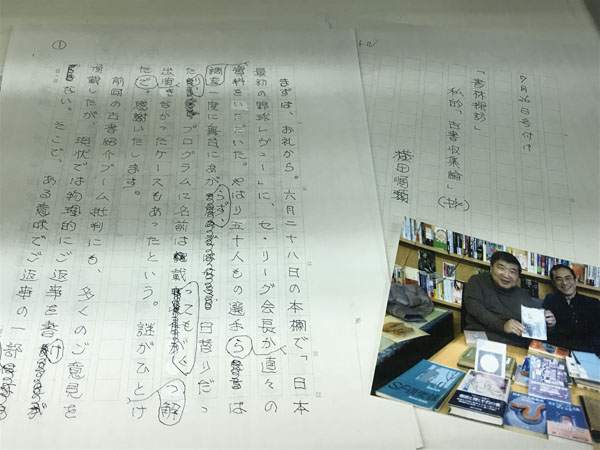 7月26日号付け
「書林探訪」
私的「古書収集論」(中)
横田順彌
①
まずは、お礼から。六月二十八日の本欄で「日本
最初の野球レヴュー」に、セ・リーグ会長が直々の
資料をいただいた。やはり五十人もの選手らは
調査一度に舞台にあがらず、日替りだっ
た。プログラムに名前は載っても
出演なかったケースもあったという。謎がひとつ解け
た。感謝いたします。
前回の古書紹介ブーム批判にも、多くのご意見を
頂戴したが、現状では物理的にご返事を書け
ない。そこで、ある意味でご返事の一部